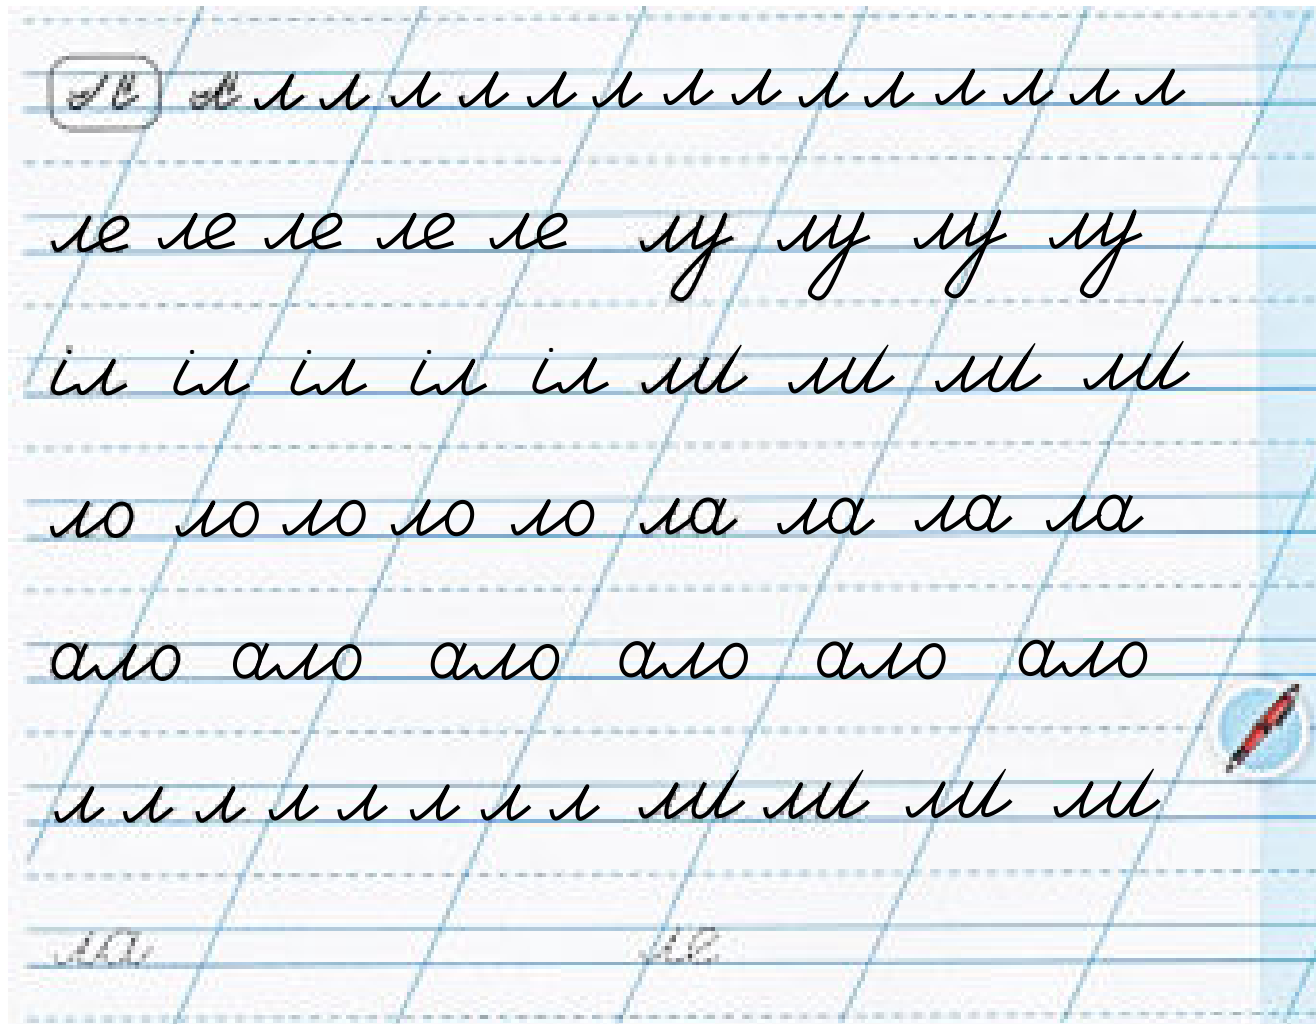 л л л л л л л л л л л л л л
ле ле ле ле ле лу лу лу лу
іл іл іл іл іл ли ли ли ли
ло ло ло ло ло ла ла ла ла
ало ало ало ало ало ало
л л л л л л л л ли ли ли ли
ла ле